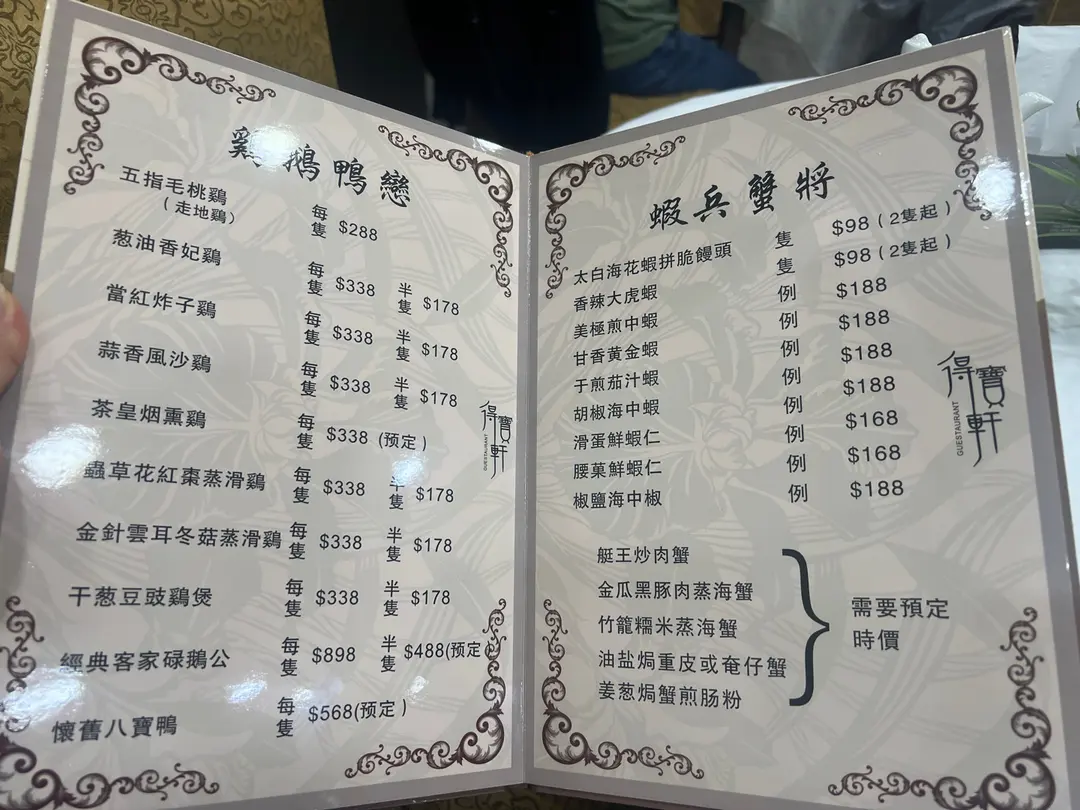 雞鵝鴨戀
五指毛桃鷄 每隻 $288
(走地鷄)
葱油香妃鷄 每隻 $338 半隻 $178
當紅炸子鷄 每隻 $338 半隻 $178
蒜香風沙鷄 每隻 $338 半隻 $178
茶皇烟熏鷄 每隻 $338 (预定)
蟲草花紅棗蒸滑鷄 每隻 $338 半隻 $178
金針雲耳冬菇蒸滑鷄 每隻 $338 半隻 $178
干葱豆豉鷄煲 每隻 $338 半隻 $178
經典客家碌鵝公 每隻 $898 半隻 $488(预定
懷舊八寶鴨 每隻 $568(预定)
得寶軒
GUESTAURANT
蝦兵蟹將
太白海花蝦拼脆饅頭 隻 $98 (2隻起)
香辣大虎蝦 隻 $98 (2隻起)
美極煎中蝦 例 $188
甘香黄金蝦 例 $188
于煎茄汁蝦 例 $188
胡椒海中蝦 例 $188
滑蛋鮮蝦仁 例 $168
腰菓鮮蝦仁 例 $168
椒鹽海中椒 例 $188
艇王炒肉蟹
金瓜黑豚肉蒸海蟹
竹籠糯米蒸海蟹
油盐焗重皮或奄仔蟹
姜葱焗蟹煎肠粉
需要預定
時價
得寶軒
GUESTAURANT